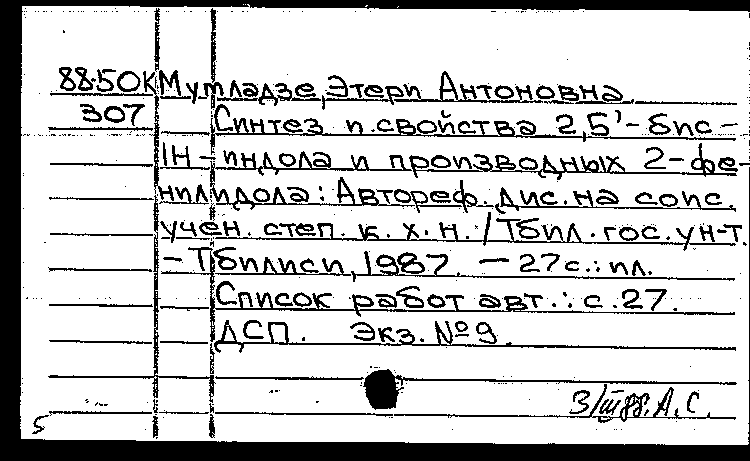 88-50К Мутладзе, Этери Антоновна.
307 Синтез и свойства 2,5'-бис-
1Н-индола и производных 2-фе-
нилидола: Автореф. дис. на соис.
учен. степ. к. х. н. / Тбил. гос. ун-т.
- Тбилиси, 1987. - 27 с.: ил.
Список работ авт.: с. 27.
ДСП. Экз. № 9.
3/III 88. А. С.
5